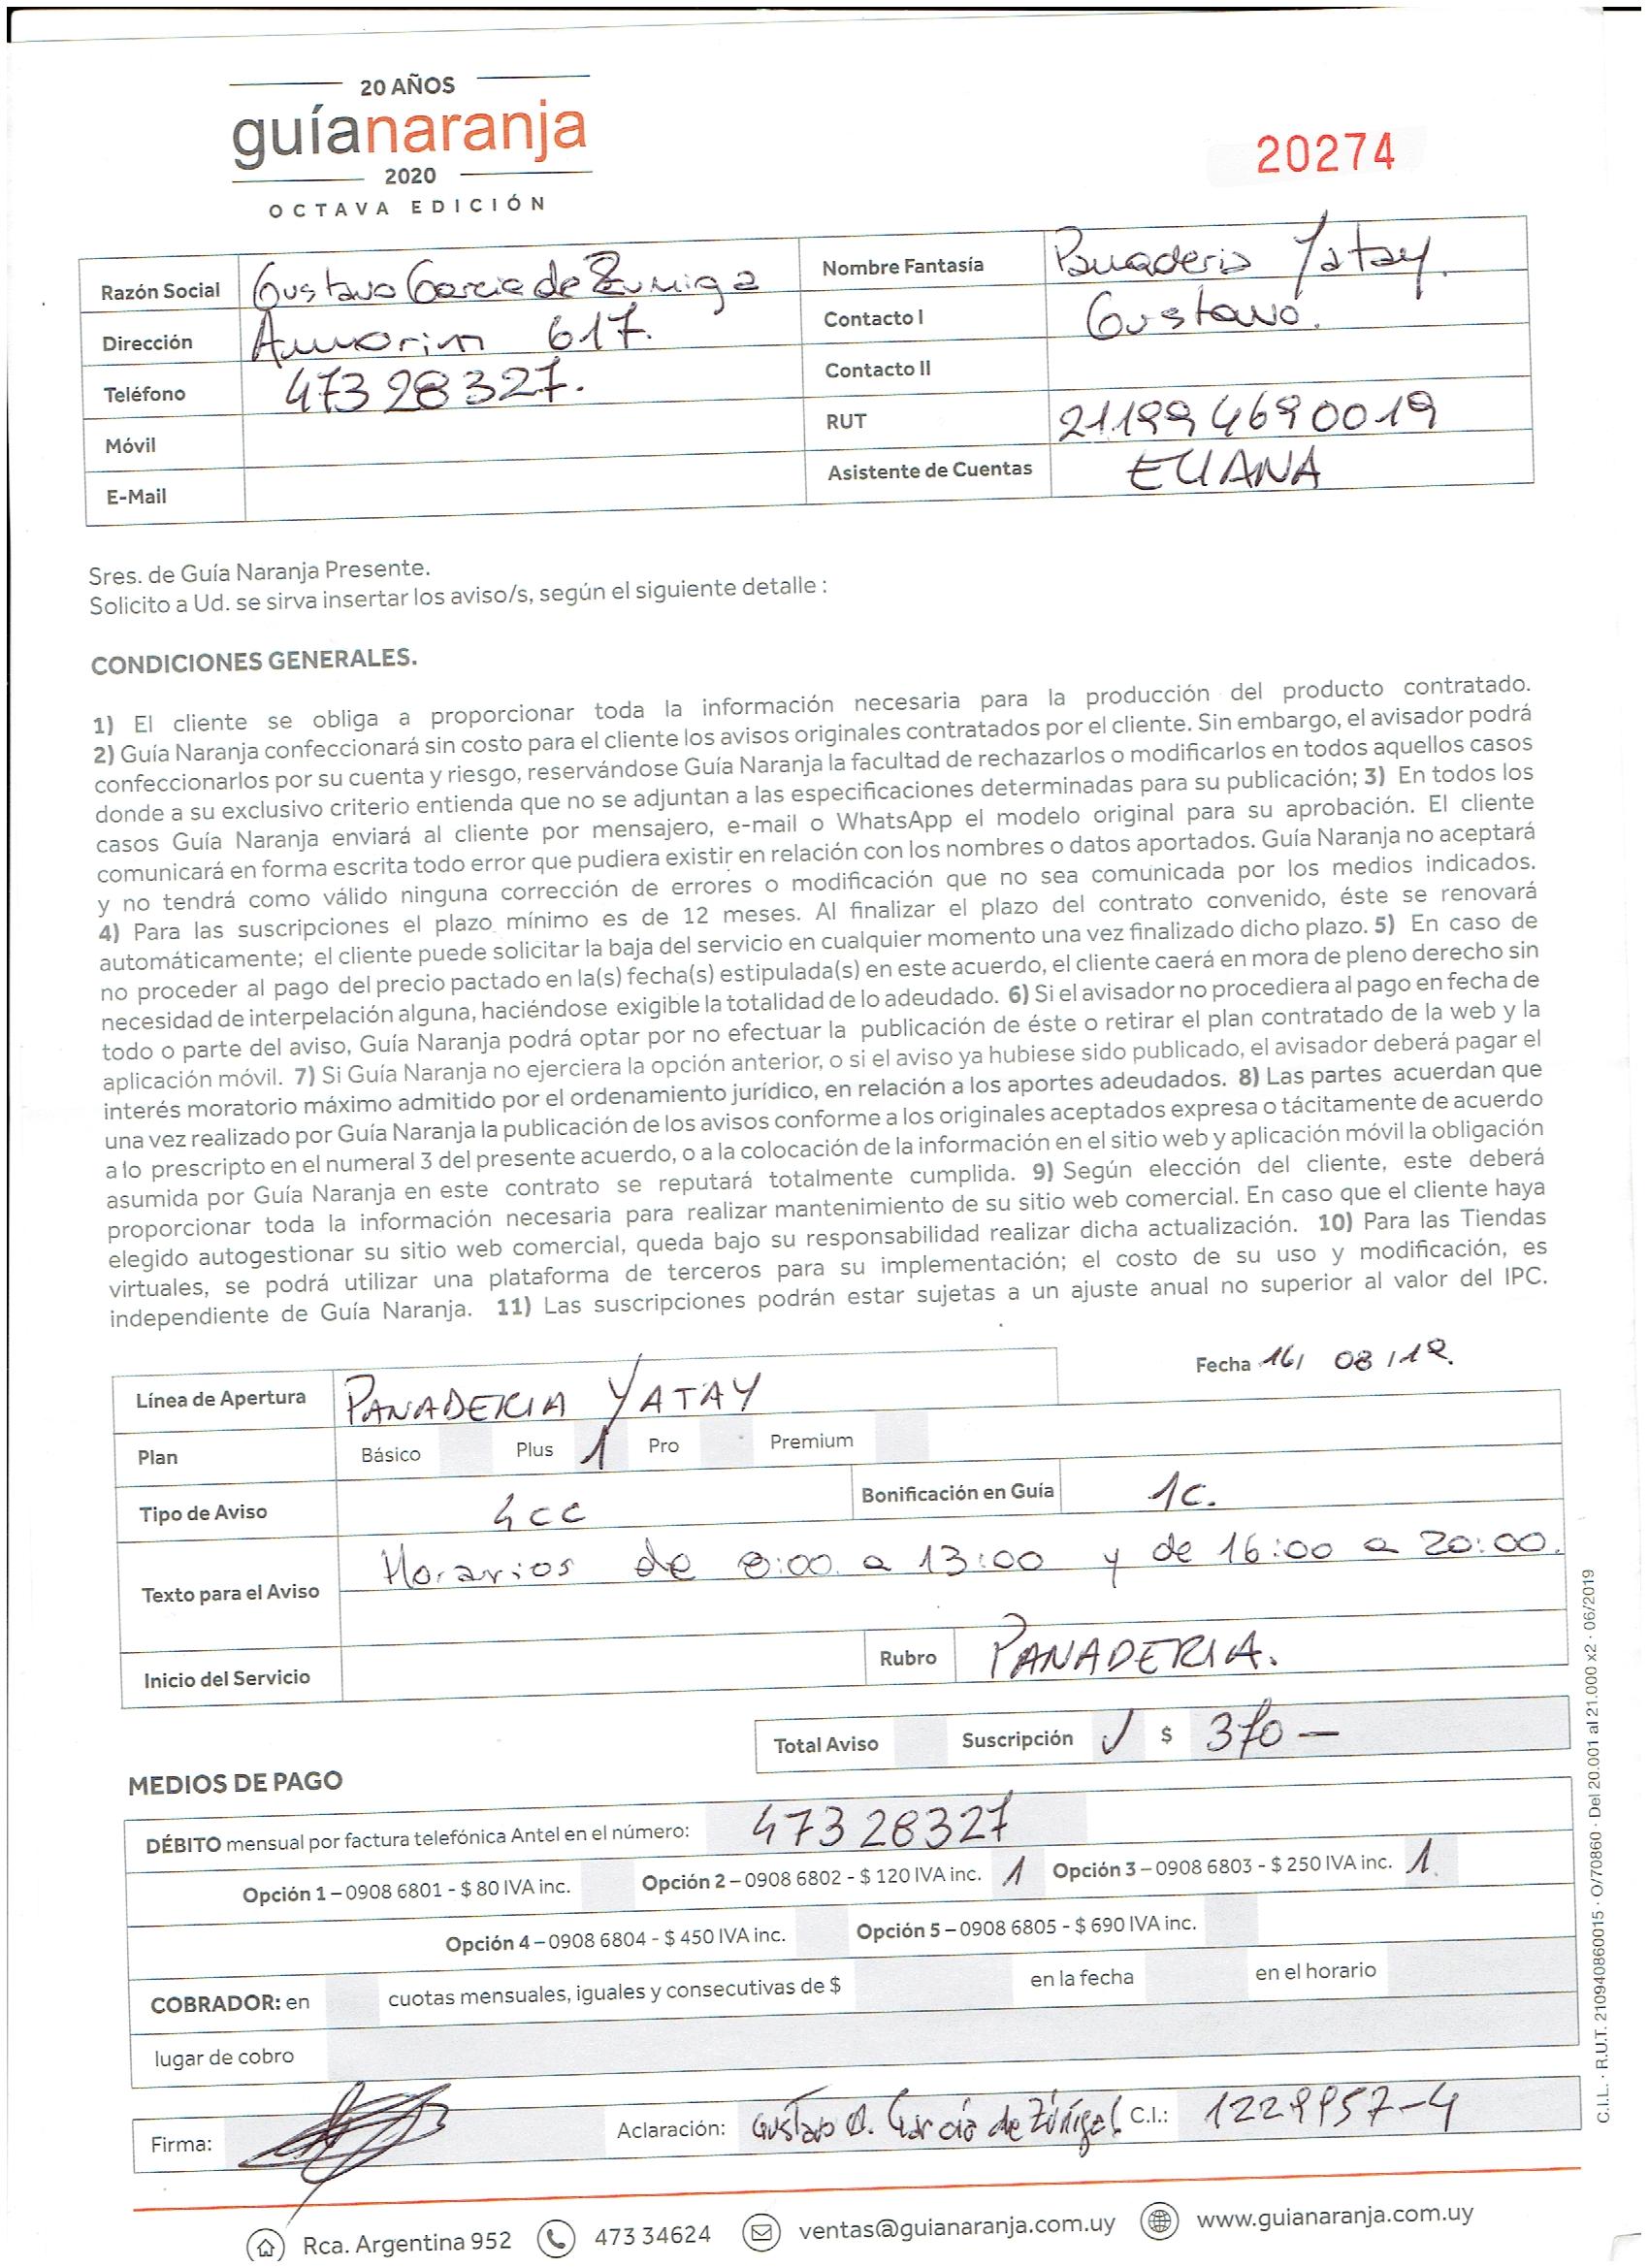 20 AÑOS
guíanaranja
2020
OCTAVA EDICIÓN
20274
Razón Social Gustavo Garcia de Zuniga Nombre Fantasía Panaderia Yatay.
Dirección Amorim 617. Contacto I Gustavo.
Teléfono 47328327. Contacto II
Móvil RUT 211994690019
E-Mail Asistente de Cuentas ELIANA
Sres. de Guía Naranja Presente.
Solicito a Ud. se sirva insertar los aviso/s, según el siguiente detalle :
CONDICIONES GENERALES.
1) El cliente se obliga a proporcionar toda la información necesaria para la producción del producto contratado.
2) Guía Naranja confeccionará sin costo para el cliente los avisos originales contratados por el cliente. Sin embargo, el avisador podrá
confeccionarlos por su cuenta y riesgo, reservándose Guía Naranja la facultad de rechazarlos o modificarlos en todos aquellos casos
donde a su exclusivo criterio entienda que no se adjuntan a las especificaciones determinadas para su publicación; 3) En todos los
casos Guía Naranja enviará al cliente por mensajero, e-mail o WhatsApp el modelo original para su aprobación. El cliente
comunicará en forma escrita todo error que pudiera existir en relación con los nombres o datos aportados. Guía Naranja no aceptará
y no tendrá como válido ninguna corrección de errores o modificación que no sea comunicada por los medios indicados.
4) Para las suscripciones el plazo mínimo es de 12 meses. Al finalizar el plazo del contrato convenido, éste se renovará
automáticamente; el cliente puede solicitar la baja del servicio en cualquier momento una vez finalizado dicho plazo. 5) En caso de
no proceder al pago del precio pactado en la(s) fecha(s) estipulada(s) en este acuerdo, el cliente caerá en mora de pleno derecho sin
necesidad de interpelación alguna, haciéndose exigible la totalidad de lo adeudado. 6) Si el avisador no procediera al pago en fecha de
todo o parte del aviso, Guía Naranja podrá optar por no efectuar la publicación de éste o retirar el plan contratado de la web y la
aplicación móvil. 7) Si Guía Naranja no ejerciera la opción anterior, o si el aviso ya hubiese sido publicado, el avisador deberá pagar el
interés moratorio máximo admitido por el ordenamiento jurídico, en relación a los aportes adeudados. 8) Las partes acuerdan que
una vez realizado por Guía Naranja la publicación de los avisos conforme a los originales aceptados expresa o tácitamente de acuerdo
a lo prescripto en el numeral 3 del presente acuerdo, o a la colocación de la información en el sitio web y aplicación móvil la obligación
asumida por Guía Naranja en este contrato se reputará totalmente cumplida. 9) Según elección del cliente, este deberá
proporcionar toda la información necesaria para realizar mantenimiento de su sitio web comercial. En caso que el cliente haya
elegido autogestionar su sitio web comercial, queda bajo su responsabilidad realizar dicha actualización. 10) Para las Tiendas
virtuales, se podrá utilizar una plataforma de terceros para su implementación; el costo de su uso y modificación, es
independiente de Guía Naranja. 11) Las suscripciones podrán estar sujetas a un ajuste anual no superior al valor del IPC.
Fecha 16/ 08 /19.
Línea de Apertura PANADERIA YATAY
Plan Básico Plus 1 Pro Premium
Tipo de Aviso 4cc Bonificación en Guía 1c.
Texto para el Aviso Horarios de 8:00 a 13:00 y de 16:00 a 20:00.
Inicio del Servicio Rubro PANADERIA.
Total Aviso Suscripción ✓ $ 370 —
MEDIOS DE PAGO
DÉBITO mensual por factura telefónica Antel en el número: 47328327
Opción 1 – 0908 6801 - $ 80 IVA inc. Opción 2 – 0908 6802 - $ 120 IVA inc. 1 Opción 3 – 0908 6803 - $ 250 IVA inc. 1.
Opción 4 – 0908 6804 - $ 450 IVA inc. Opción 5 – 0908 6805 - $ 690 IVA inc.
COBRADOR: en cuotas mensuales, iguales y consecutivas de $ en la fecha en el horario
lugar de cobro
Firma: Aclaración: Gustavo A. García de Zúñiga C.I.: 1229957-4
Rca. Argentina 952 473 34624 ventas@guianaranja.com.uy www.guianaranja.com.uy
C.I.L. · R.U.T. 210940860015 · O/70860 · Del 20.001 al 21.000 x2 · 06/2019